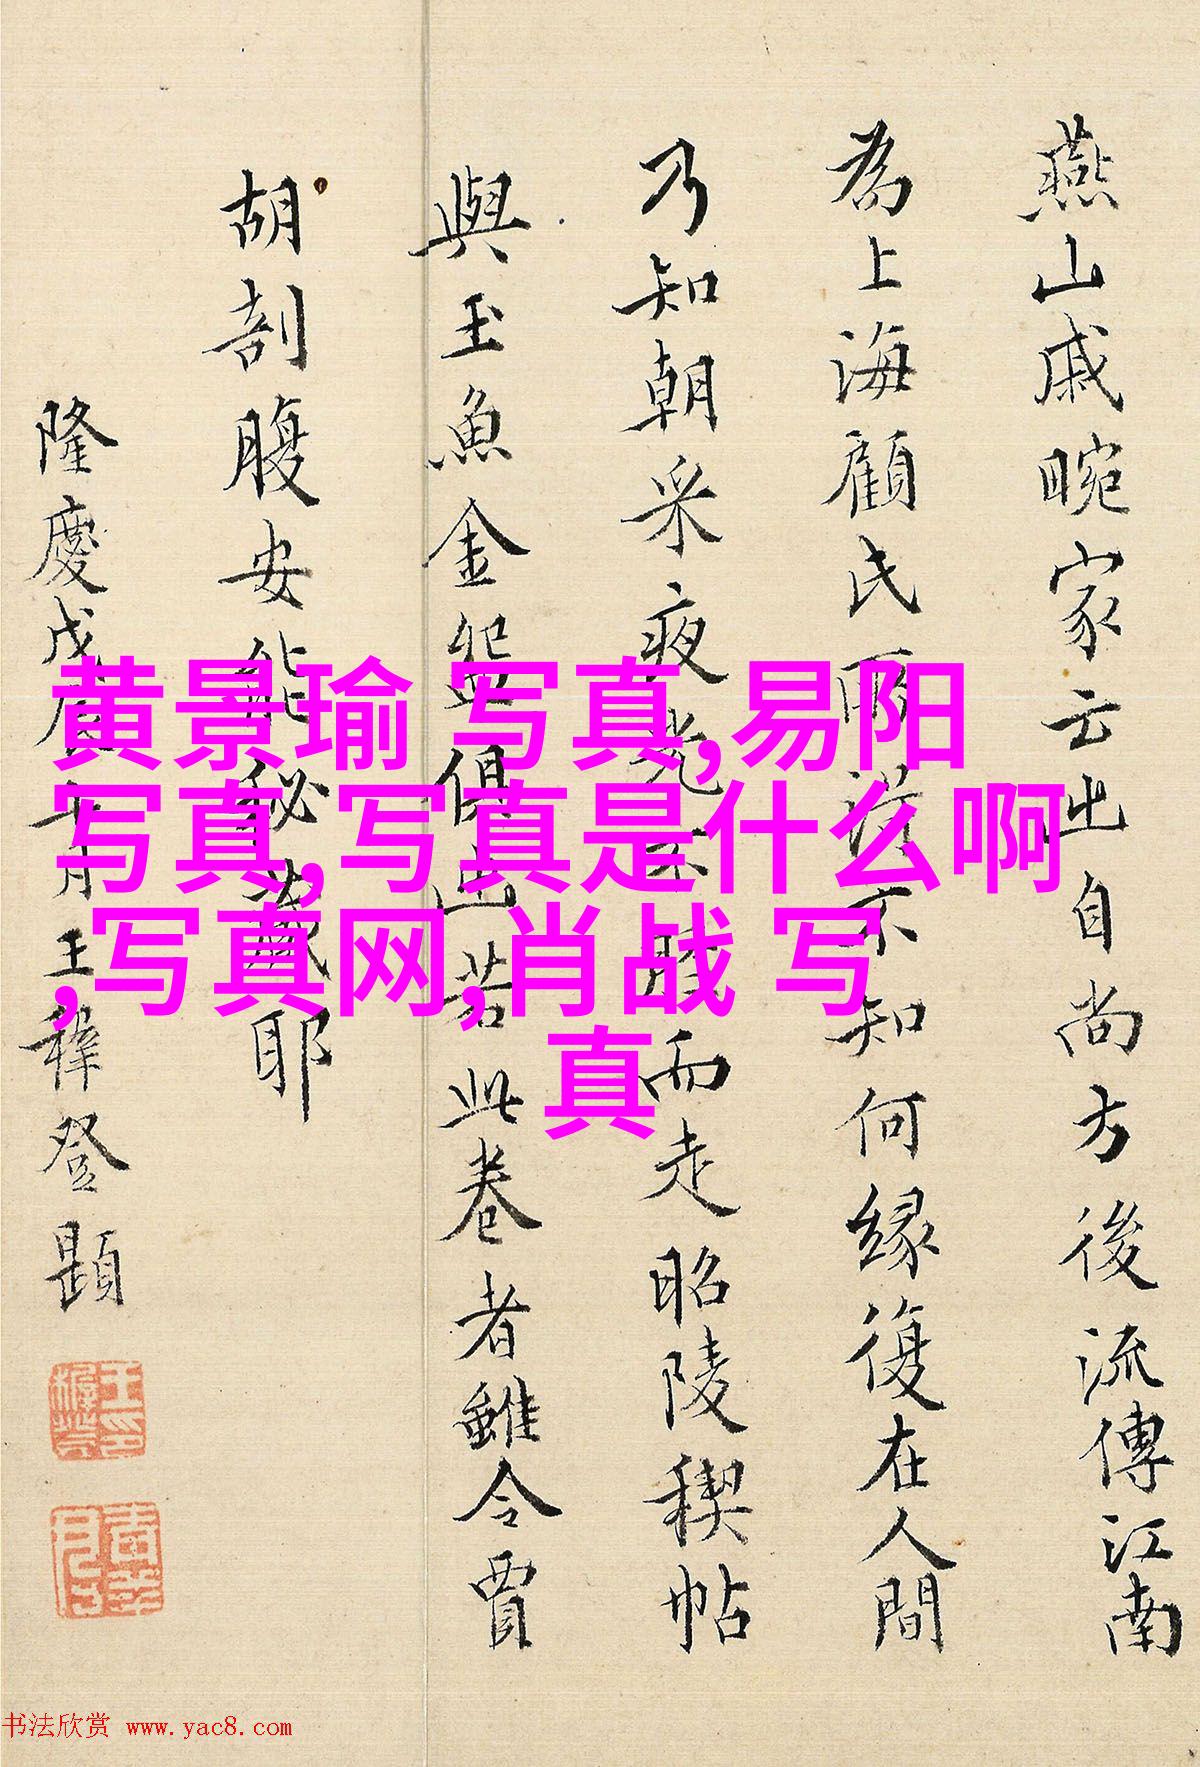 燕山戚畹家云出自尚方後流傳江南
為上海顧氏所
不知何緣復在人間
乃知朝采夜光不脛而走昭陵稧帖
與玉魚金盌俱出若此卷者雖令賈
胡剖腹安能秘藏耶
隆慶戊辰七月王穉登題
黄景瑜 写真,易阳
写真,写真是什么啊
,写真网,肖战 写
真
书法欣赏 www.yac8.com